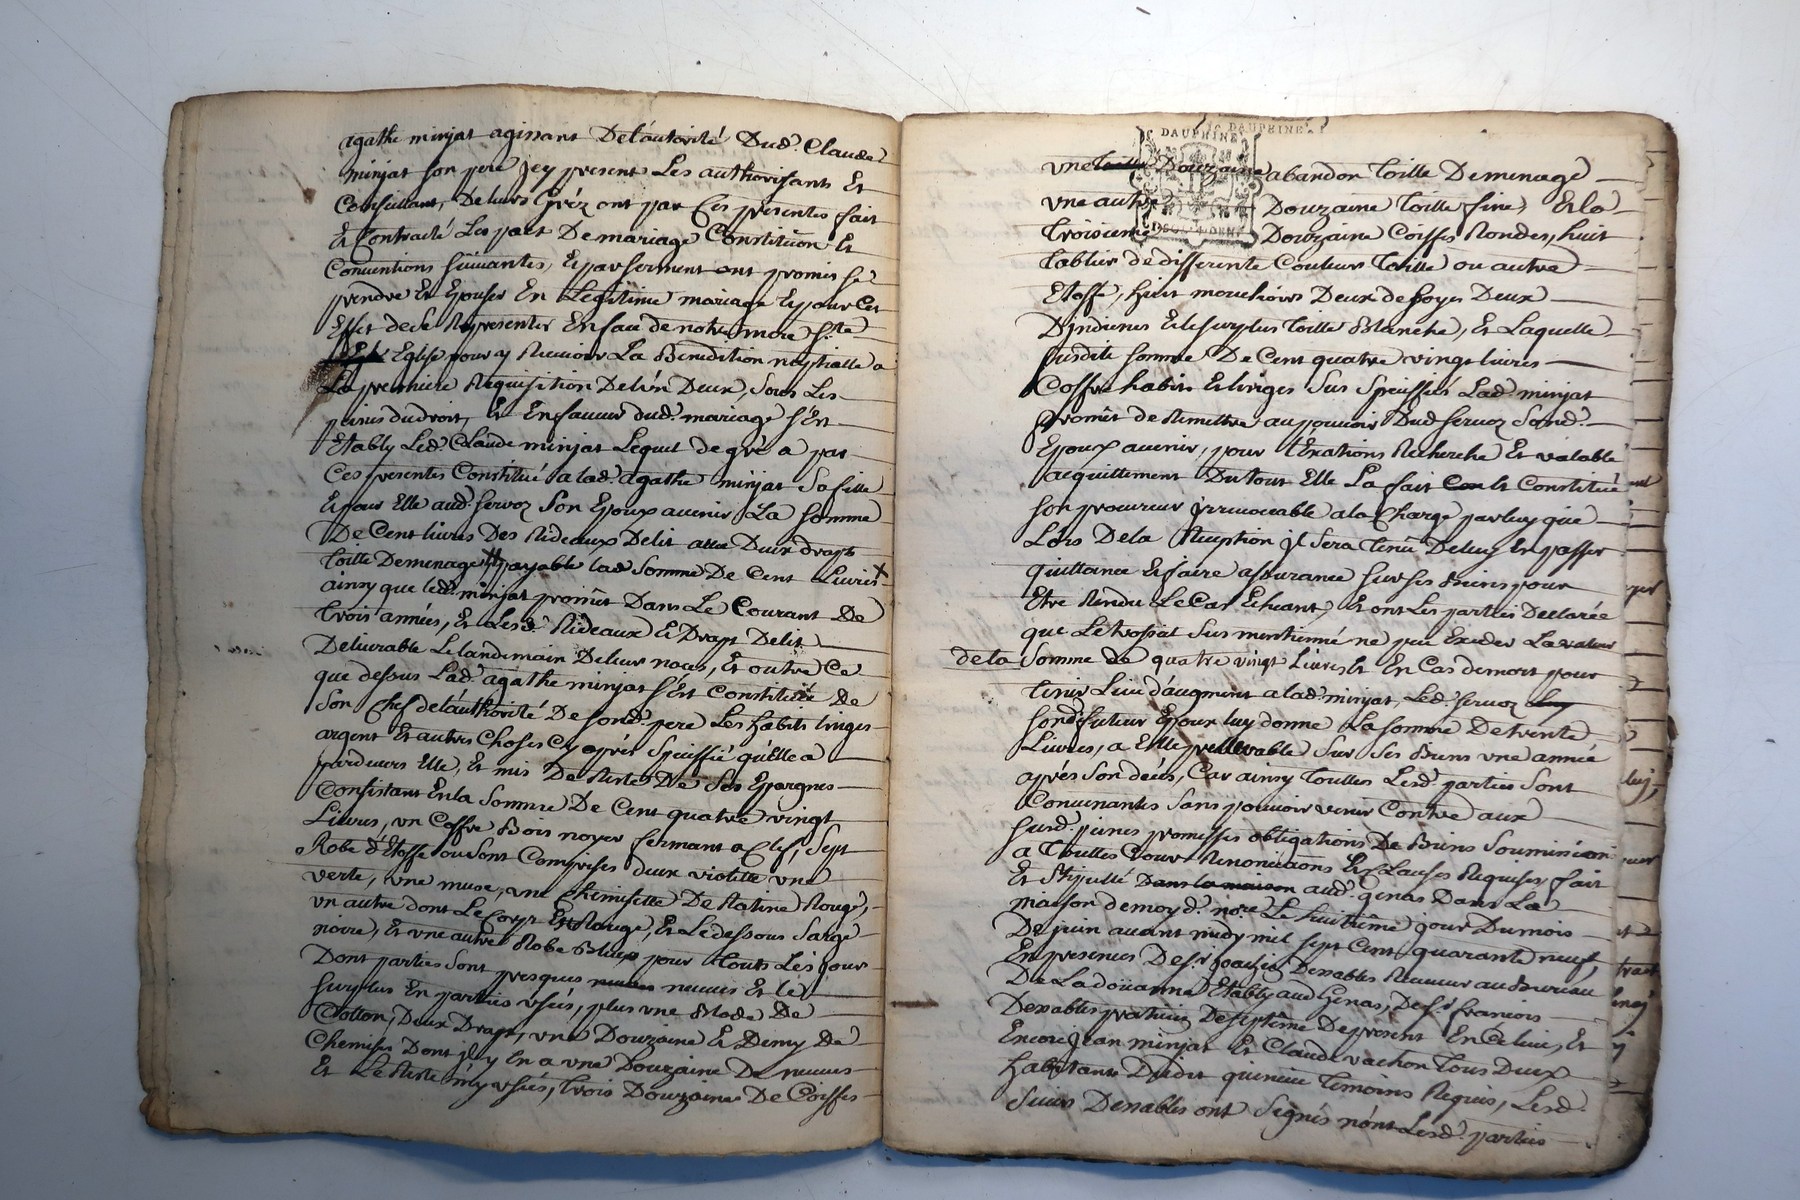 agathe minjat agissant De l'autorité Dud. Claude
minjat son pere jcy present Les authorisants Et
Consillant, De leurs gréz ont par Ces presentes fait
Et Contracté Les pact De mariage Constitution Et
Conventions suivantes, Et par serment ont promis se
prendre Et Epouser En Legitime mariage Et pour Cet
Effet de se Representer En face de notre mere Ste
Eglise pour y Recevoir La Benedition nuptialle a
La premiere Requisition De l'un Deux, sous Les
peines du droit, Et En faveur dud. mariage s'Est
Etably Led. Claude minjat Lequel de gré a par
Ces presentes Constitué a lad. agathe minjat Sa fille
Et pour Elle aud. servoz Son Epoux avenir La somme
De Cent livres Des Rideaux De lit Deux drapt
toille Demenage payable lad Somme De Cent Livres
ainsy que led. minjat promet Dans Le Courant De
trois années, Et Lesd. Rideaux Et Drapt De lit
Delivrable Le landemain De leur noces, Et outre Ce
que dessus Lad. agathe minjat s'Est Constitüé De
Son Chef de l'authorité De sond. pere Les habits linges
argent Et autres Choses Cy aprés Speciffié qu'elle a
pardevers Elle, Et mis De Reste De Ses Epargnes
Consistant En la Somme De Cent quatre vingt
Livres, un Coffre Bois noyer fermant a Clef, Sept
Robe d'Etoffe ou sont Comprises deux violette une
verte, une muse, une Chemisette De Ratine Rouge,
un autre dont Le Corps Est Rouge, Et Le dessous Sarge
noire, Et une autre Robe Bleue pour touts Les jours
Dont parties sont presques neuves Et le
surplus En parties usés, plus une Mode De
Cotton, Deux Draps, une Douzaine Et Demy De
Chemises Dont jl y En a une Douzaine De neuves
Et Le Reste my usés, trois Douzaines De Coiffes
DAUPHINE
DAUPHINE
une Douzaine abandon toille Demenage
une autre Douzaine toille fine, Et la
troisieme Douzaine Coiffes Rondes, huit
tablier de differente Couleurs toille ou autre
Etoffe, huit mouchoirs Deux de Soyes Deux
D'indienes Et le surplus toille Blanche, Et Laquelle
susdite Somme De Cent quatre vingt livres
Coffre habits Et linges Sus Speciffiés Lad. minjat
promet de Remettre au pouvoir Dud servoz Sond.
Epoux avenir, pour l'Exations Recherche Et valable
acquittement Du tout Elle La fait Et Constitué
Son procureur jrrevocable a la Charge par luy que
Lors De la Reception jl Sera tenû De luy En passer
quittance Et faire assurance sur ses Biens pour
Etre Rendu Le Cas Echeant, Et ont Les parties Declarée
que Le trossat Sus mentionné ne peu Exceder La valeur
de la Somme de quatre vingt Livres Et En Cas de mort pour
tenir Lieu d'augment a lad. minjat, Led. servoz
sond futeur Epoux luy donne La somme De trente
Livres, a Elle prellevable Sur Ses Biens une année
aprés Son decés, Car ainsy toutes Lesd. parties Sont
Convenantes Sans pouvoir venir Contre aux
susd. peines promesses obligations De Biens Soumission
a toutes Cours Renonciations Et Clauses Requises fait
Et Stipullé Dans la maison aud. genas Dans La
maison de moy d. nore Le huitiéme jour Du mois
De juin avant midy mil sept Cent quarante neuf,
En presences De sr joachin Dexables Receveur au Bureau
De La doüanne Etably aud Genas, De sr francois
Dexables praticien De septême De present En Ce lieu, Et
Encore jean minjat Et Claude vachon tous Deux
habitants Dudit temoins Requis, Lesd.
Sieurs Dexables ont Signés non Lesd. parties